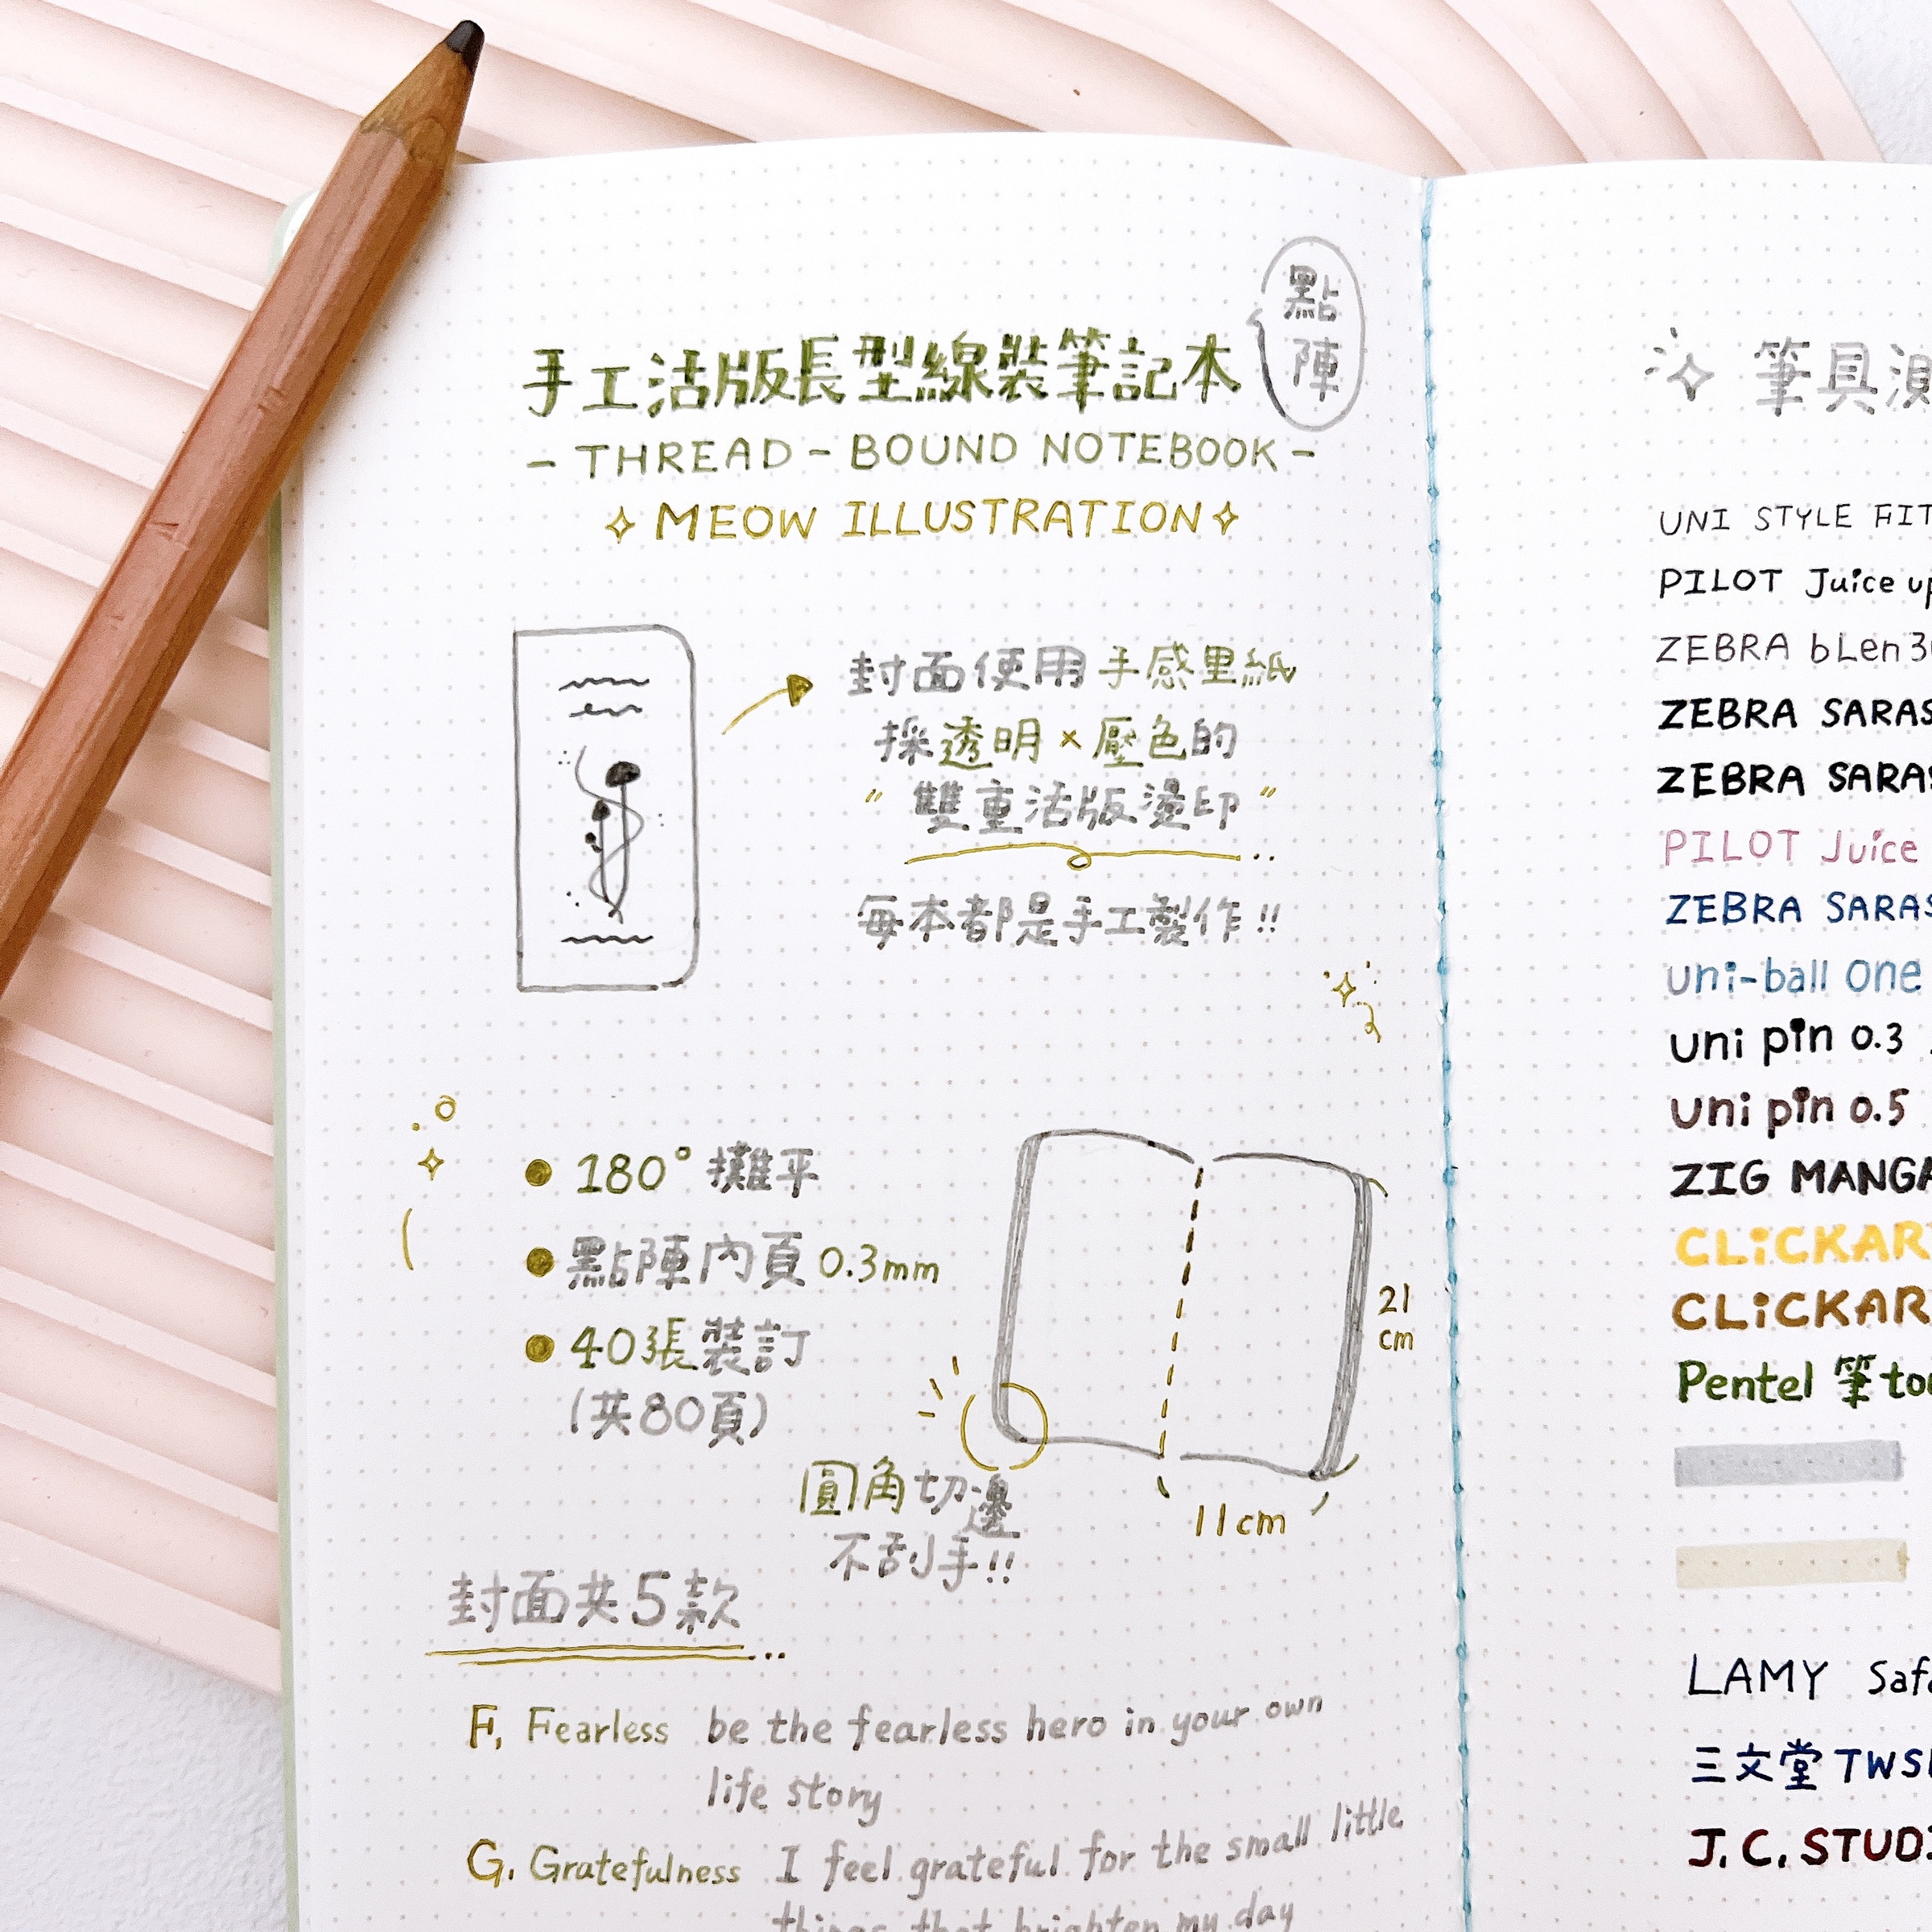 點陣
手工活版長型線裝筆記本
- THREAD - BOUND NOTEBOOK -
MEOW ILLUSTRATION
封面使用手感里紙
採透明×壓色的
"雙重活版燙印"
每本都是手工製作!!
180°攤平
點陣內頁0.3mm
40張裝訂
(共80頁)
21
cm
11cm
圓角切邊
不刮手!!
封面共5款
F. Fearless be the fearless hero in your own
life story
G. Gratefulness I feel grateful for the small little
things that brighten my day
筆具
UNI STYLE FIT
PILOT Juice up
ZEBRA bLen
ZEBRA SARAS
ZEBRA SARAS
PILOT Juice
ZEBRA SARAS
uni-ball one
uni pin 0.3
uni pin 0.5
ZIG MANGA
CLiCKAR
CLiCKAR
Pentel 筆tou
LAMY Safa
三文堂 TWS
J.C. STUD